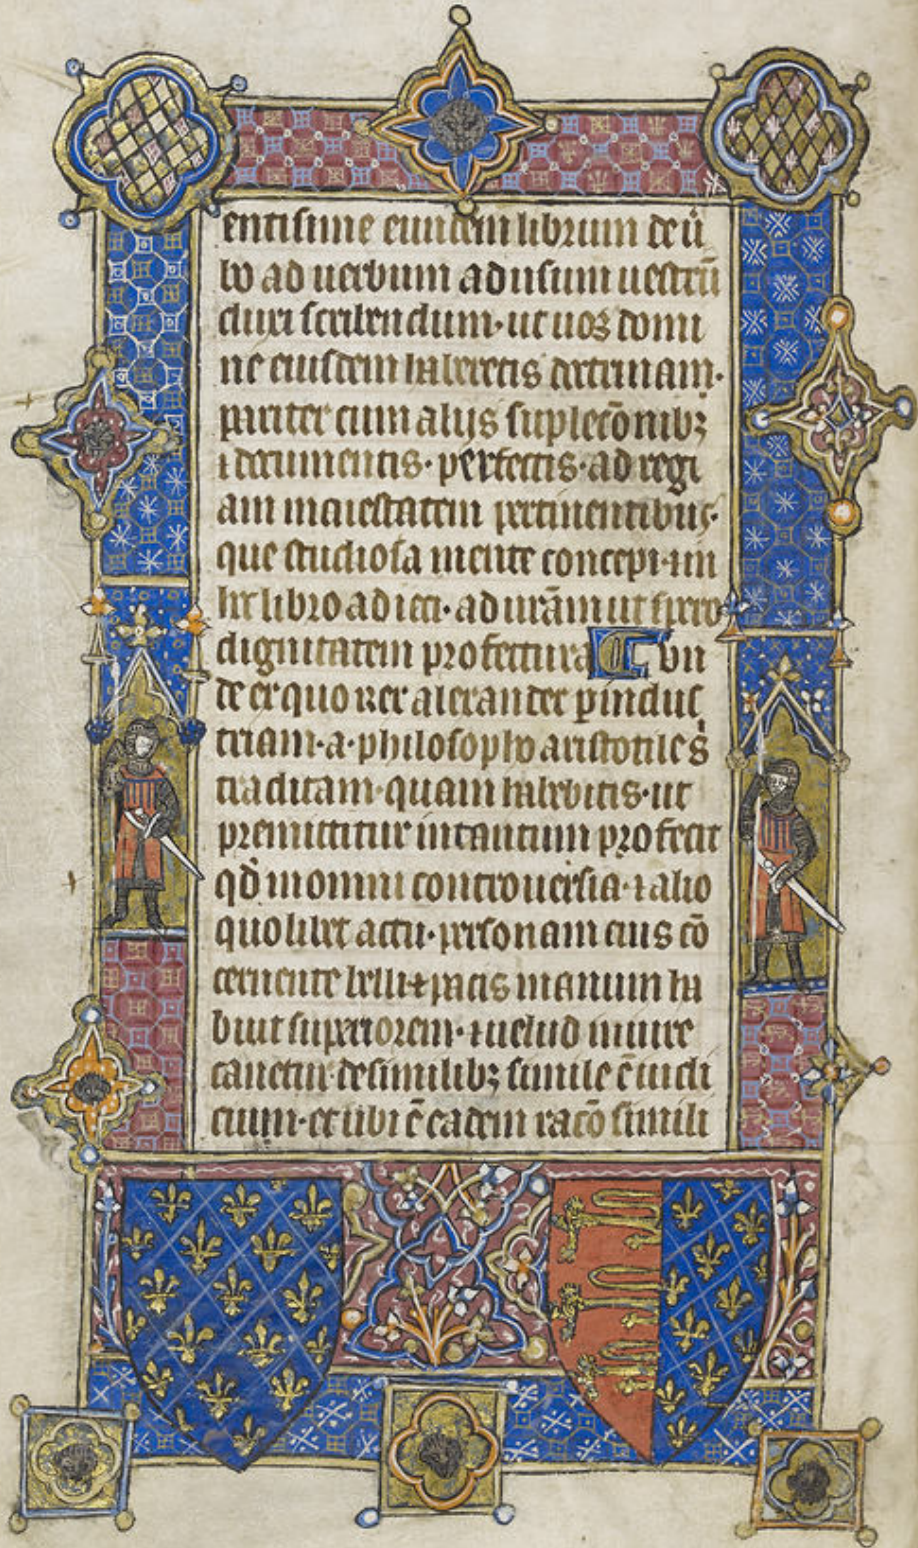 entissime eiusdem librum de ṽ
bo ad uerbum ad usum uestrũ
duxi scribendum· ut uos domi
ne eiusdem haberetis doctrinam·
pariter cum alijs suplecõnibꝫ
⁊ documentis· perfectis· ad regi
am maiestatem pertinentibus·
que studiosa mente concepi· ⁊ in
h̅c libro adieci· ad ur̃am ut spero
dignitatem profectura Cvn
de et quo rex alexander ꝑ indus
triam· a· philosopho aristotiles̃
traditam· quam habebitis· ut
premittitur in tantum profecit
qd̃ in omni controuersia· ⁊ alio
quolibet actu· personam eius cõ
cernente belli ⁊ pacis manum ha
buit superiorem· ⁊ uelud in iure
cauetur· de similibꝫ simile ẽ iudi
cium· et ubi ẽ eadem racõ simili